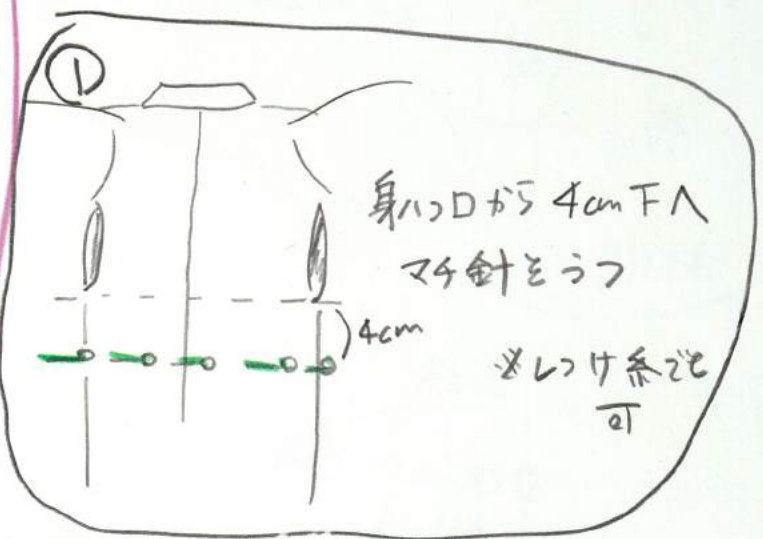 ①
身八つ口から 4cm下へ
マチ針をうつ
4cm
※しつけ糸でも
可